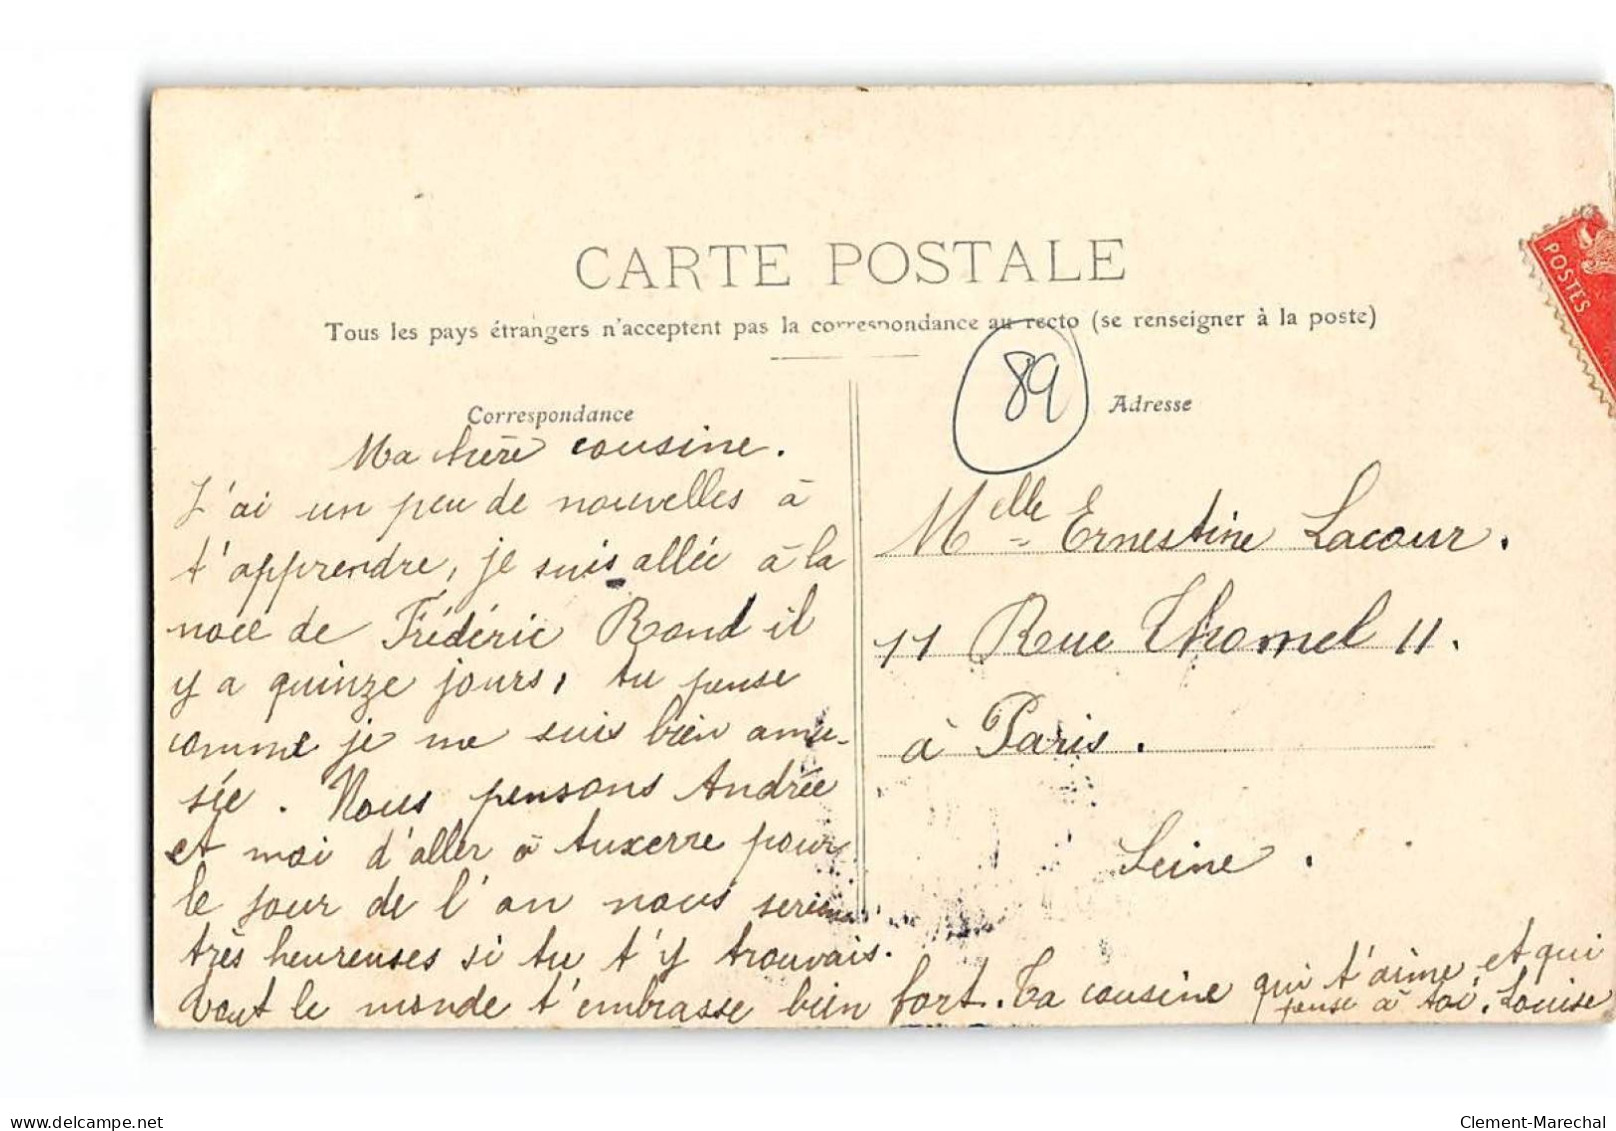 CARTE POSTALE
Tous les pays étrangers n'acceptent pas la correspondance au recto (se renseigner à la poste)
89
Correspondance
Adresse
POSTES
Ma chère cousine.
J'ai un peu de nouvelles à
t'apprendre, je suis allée à la
noce de Frédéric Rond il
y a quinze jours, tu pense
comme je me suis bien amu-
sée. Nous pensons Andrée
et moi d'aller à Auxerre pour
le jour de l'an nous serions
très heureuses si tu t'y trouvais.
Tout le monde t'embrasse bien fort. Ta cousine qui t'aime et qui
pense à toi. Louise
Melle Ernestine Lacour.
11 Rue Thomel 11.
à Paris.
Seine.
delcampe.net
Clement-Marechal